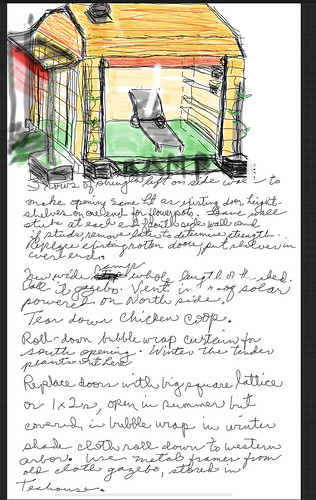 RAMP
3 rows of shingles left on side wall to
make opening same ht as existing door height -
shelves on one end for flowerpots. Leave wall
studs at each end south side wall and
if studs, remove later to determine strength.
Replace existing rotten doors, put shelves in
over end.
New wide ramp whole length of the shed.
Call it gazebo. Vent in roof solar
powered on North side,
Tear down chicken coop.
Roll-down bubble wrap curtain for
south opening. Winter the tender
plants out here
Replace doors with big square lattice
or 1x2s, open in summer but
covered in bubble wrap in winter
shade cloth roll down to western
arbor. Use metal frames from
old cloth gazebo, stored in
Teahouse.